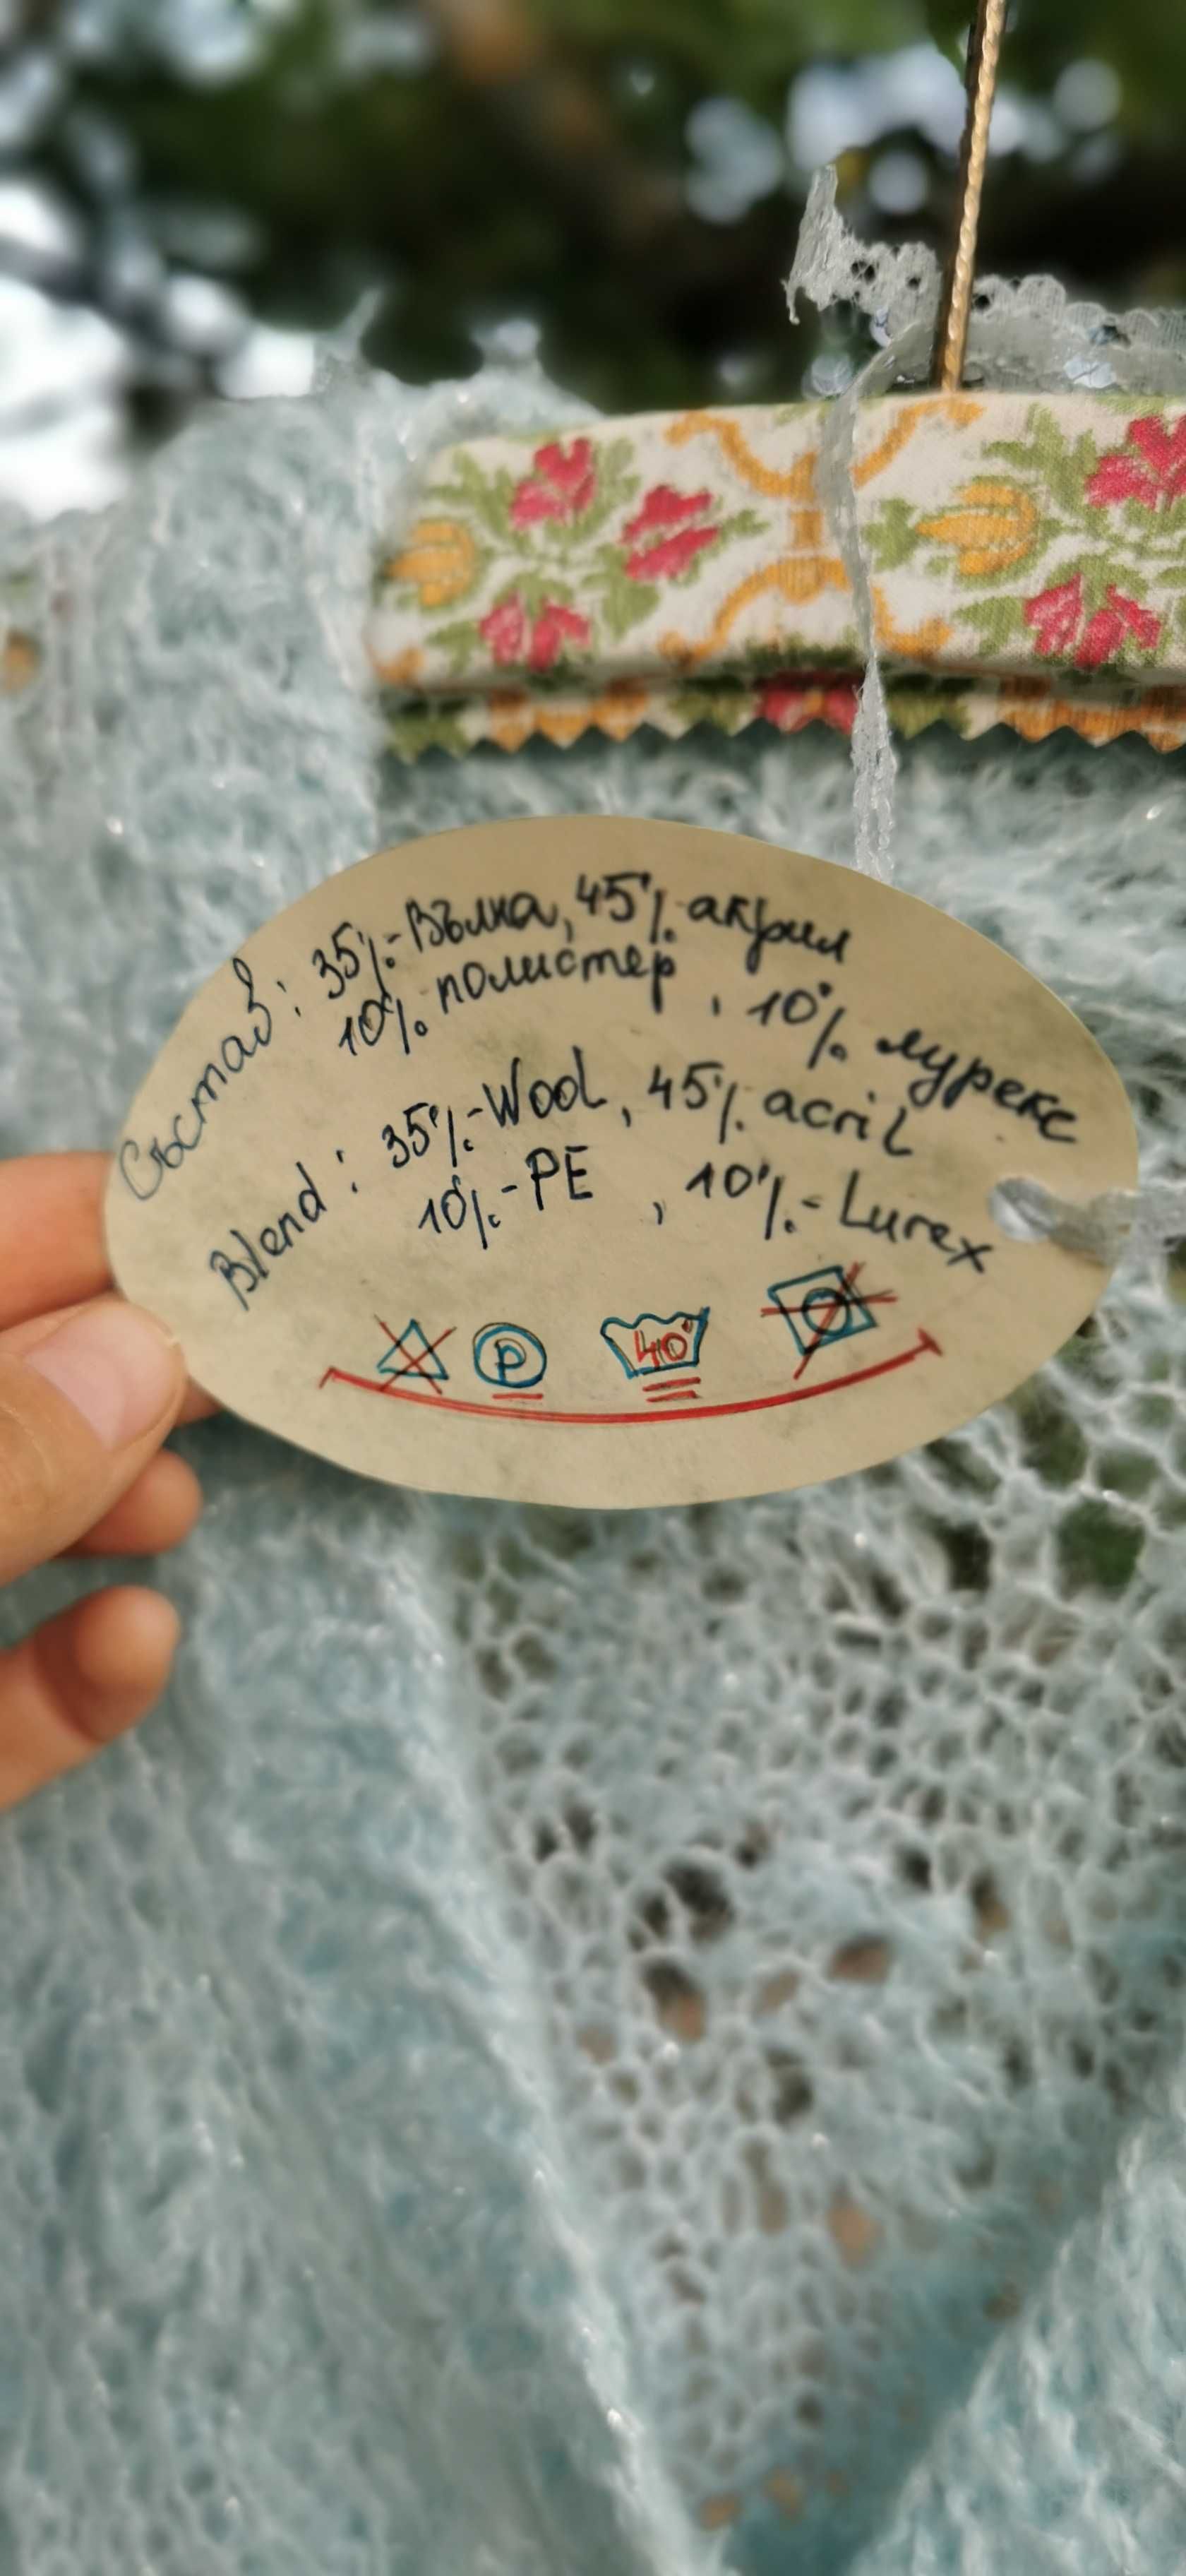 Състав: 35%-Вълна, 45% акрил
10% полистер, 10% лурекс
Blend: 35%-Wool, 45% acril
10%-PE, 10%-Lurex
P 40°